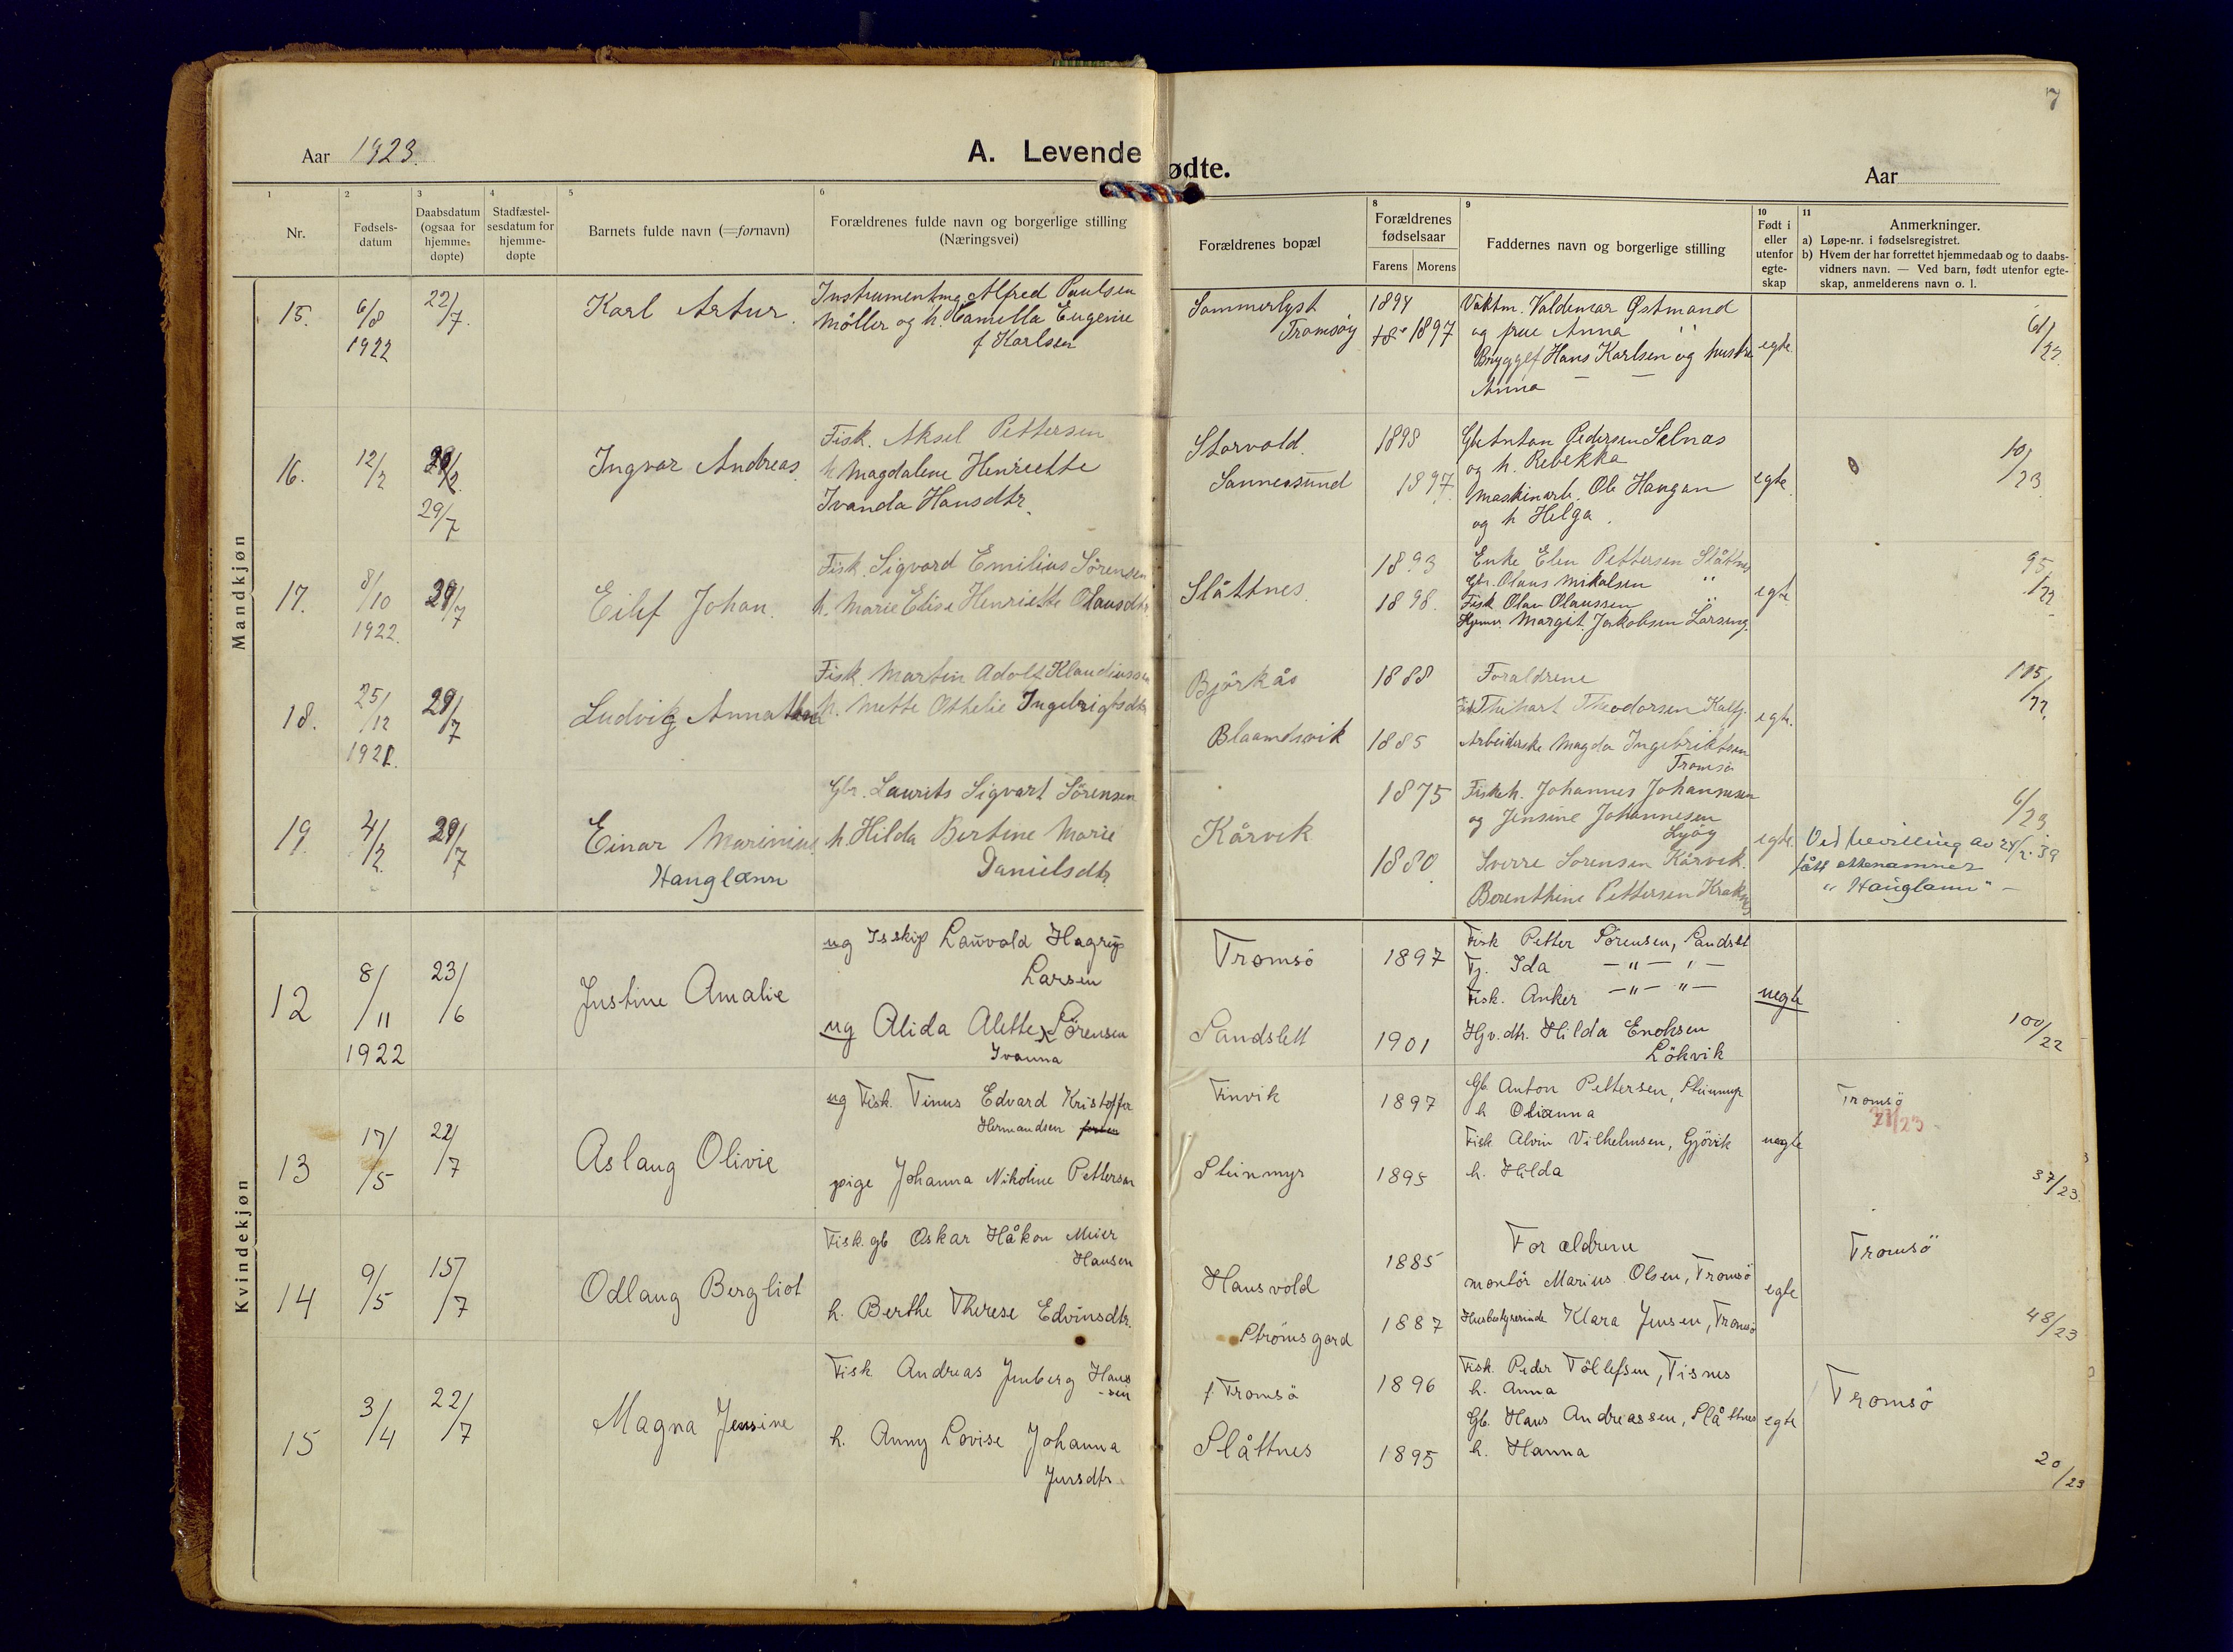 Aar 1923.
A. Levende
ødte.
Aar
7
1
2
3
4
5
6
8
9
10
11
Nr.
Fødsels-
datum
Daabsdatum
(ogsaa for
hjemme-
døpte)
Stadfæstel-
sesdatum for
hjemme-
døpte
Barnets fulde navn (=fornavn)
Forældrenes fulde navn og borgerlige stilling
(Næringsvei)
Forældrenes bopæl
Forældrenes
fødselsaar
Farens Morens
Faddernes navn og borgerlige stilling
Født i
eller
utenfor
egte-
skap
Anmerkninger.
a) Løpe-nr. i fødselsregistret.
b) Hvem der har forrettet hjemmedaab og to daabs-
vidners navn. — Ved barn, født utenfor egte-
skap, anmelderens navn o. l.
Mandkjøn
15.
6/8
1922
22/7.
Karl Artur.
Instrumentmg. Alfred Paulsen
Möller og h. Camella Eugenie
f Karlsen
Sommerlyst
Tromsøy
1894
1897
Vaktm. Valdemar Østmand
og frue Anna "
Bryggef Hans Karlsen og hustru
Anna — —
egte.
61/23.
16.
12/2
29/7
Ingvar Andreas.
Fisk. Aksel Pettersen
h. Magdalene Henriette
Ivanda Hansdtr.
Storvold.
Sannessund
1898
1897.
Gb. Anton Pedersen Selnas
og h. Rebekka
Maskinarb. Ole Hangan
og h Helga.
egte.
10/23.
17.
8/10
1922.
29/7
Eilif Johan.
Fisk. Sigvard Emilius Sörensen
h. Marie Elise Henriette Olausdtr.
Slåttnes.
1893
1898.
Enke Elen Pettersen Slåttnes
Gbr. Olaus Mikalsen "
Fisk Olav Olaussen "
Hjemv. Margit Jakobsen
egte
95/22
18.
25/12
1921.
29/7
Ludvig
Fisk. Martin Adolf Klaudiussen
h. Mette Othelie Ingebrigtsdtr.
Björkås
Blaamdsvik
1888
1885
Foraldrene
Theodorsen
Arbeiderske Magda Ingebriktsen
Tromsö
egte.
115/22.
19.
4/2.
29/7
Einar Marinius.
Hauglann
Gbr. Laurits Sigvart Sörensen
h. Hilda Bertine Marie
Danielsdtr.
Kårvik
1875
1880.
Fiskeh. Johannes Johannesen
og Jensine Johannesen
Lyög
Sverre Sorensen Kårvik.
Berenthine Pettersen Kraknes
egte.
6/23.
Ved bevilling av 24/2. 39
fått ettenamnet
"Hauglann" —
Kvindekjøn
12
8/11
1922
23/6
Justine Amalie
ug Isskip Lauvold Hagrup
Larsen
ug Alida Alette Sörensen
Ivanna
Tromsö
Sandslett
1897
1901
Fisk Petter Sörensen, Sandslt
Tj. Ida — " — " —
Fisk. Anker — " — " —
Hjv. dtr. Hilda Enoksen
Lökvik
uegte
100/22
13
17/5
22/7
Aslaug Olivie
ug Fisk. Tinus Edvard Kristoffer
Hermandsen
pige Johanna Nikoline Pettersen
Finvik
Steinmyr
1897
1895
Gb Anton Pettersen, Steinmyr
h Olianna
Fisk Alvin Vilhelmsen, Gjövik
h. Hilda
uegte
Tromsö
37/23.
14
9/5
15/7
Odlaug Bergliot
Fisk. gb Oskar Håkon Meier
Hansen
h. Berthe Therese Edvinsdtr.
Hansvold
Strömsgard
1885
1887
Forældrene
montör Marius Olsen, Tromsö
Husbestyrerinde Klara Jensen, Tromsö
egte
Tromsö
48/23
15
3/4
22/7
Magna Jensine
Fisk Andreas Jenberg Hans
-sen
h. Anny Lovise Johanna
Jensdtr.
f. Tromsö
Slåttnes
1896
1895
Fisk. Peder Töllefsen, Tisnes
h. Anna
Gb. Hans Andreassen, Slåttnes
h. Hanna
egte
Tromsö
20/23